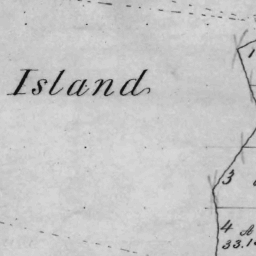 1
Island
3
4 A
33.1